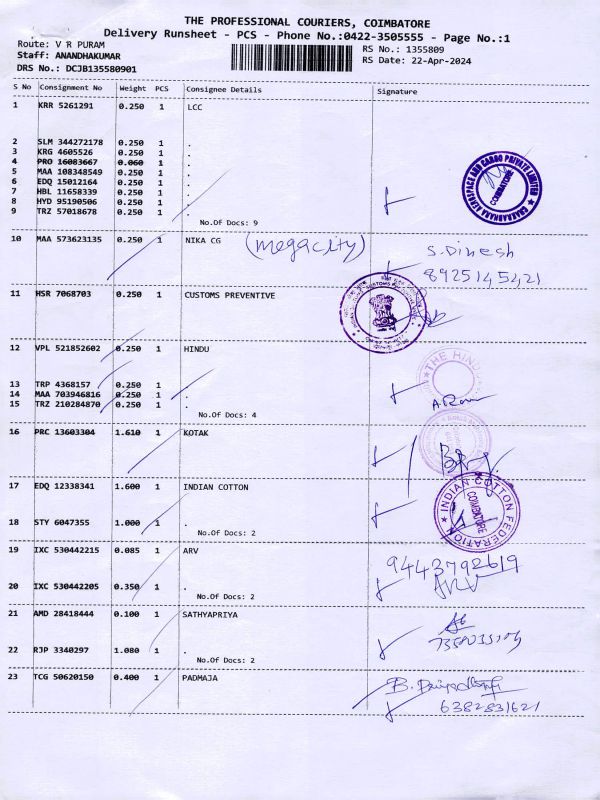 THE PROFESSIONAL COURIERS, COIMBATORE
Delivery Runsheet - PCS - Phone No.:0422-3505555 - Page No.:1
Route: V R PURAM
RS No.: 1355809
Staff: ANANDHAKUMAR
RS Date: 22-Apr-2024
DRS No.: DCJB135580901
S No Consignment No Weight PCS Consignee Details Signature
1 KRR 5261291 0.250 1 LCC
2 SLM 344272178 0.250 1 .
3 KRG 4605526 0.250 1 .
4 PRO 16083667 0.060 1 .
5 MAA 108348549 0.250 1 .
6 EDQ 15012164 0.250 1 .
7 HBL 11658339 0.250 1 .
8 HYD 95190506 0.250 1 .
9 TRZ 57018678 0.250 1 .
No.Of Docs: 9
COIMBATORE
10 MAA 573623135 0.250 1 NIKA CG (megacity)
S. Dinesh
8925145421
11 HSR 7068703 0.250 1 CUSTOMS PREVENTIVE
12 VPL 521852602 0.250 1 HINDU
THE HINDU
13 TRP 4368157 0.250 1 .
14 MAA 703946816 0.250 1 .
15 TRZ 210284870 0.250 1 .
No.Of Docs: 4
16 PRC 13603304 1.610 1 KOTAK
17 EDQ 12338341 1.600 1 INDIAN COTTON
INDIAN COTTON FEDERATION
COIMBATORE
18 STY 6047355 1.000 1 .
No.Of Docs: 2
19 IXC 530442215 0.085 1 ARV
9443792619
ARV
20 IXC 530442205 0.350 1 .
No.Of Docs: 2
21 AMD 28418444 0.100 1 SATHYAPRIYA
22 RJP 3340297 1.080 1 .
No.Of Docs: 2
23 TCG 50620150 0.400 1 PADMAJA
6382831621